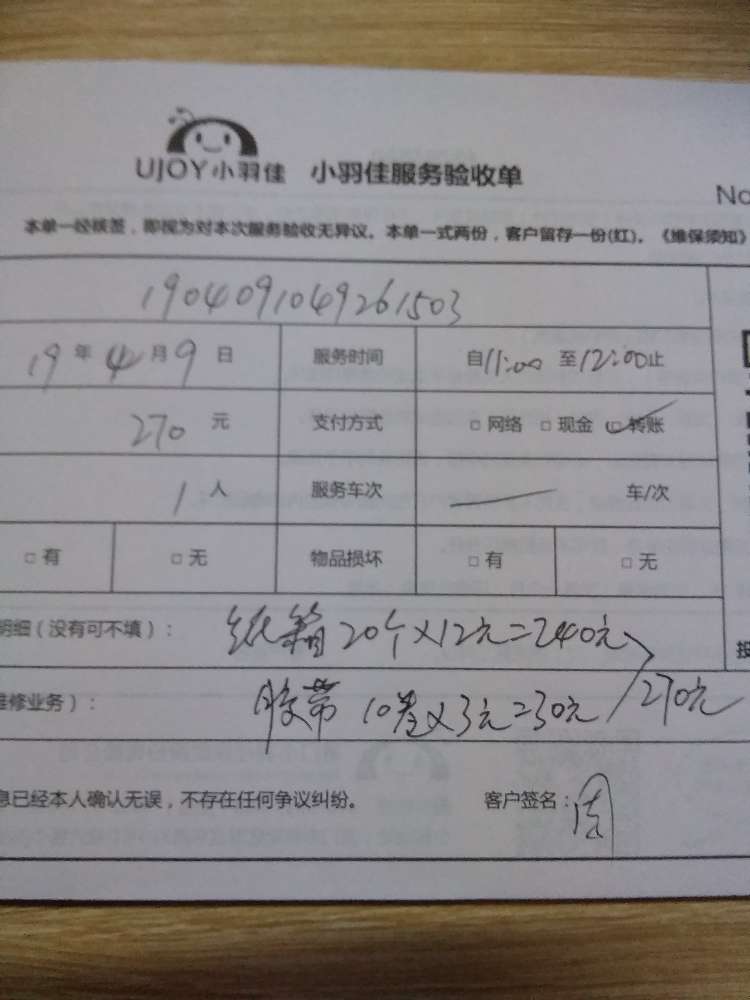 UJOY小羽佳 小羽佳服务验收单
No
本单一经核签，即视为对本次服务验收无异议。本单一式两份，客户留存一份(红)。《维保须知》
1904091049261503
19年4月9日 服务时间 自11:00至12:00止
270元 支付方式 □网络 □现金 □转账
1人 服务车次 — 车/次
□有 □无 物品损坏 □有 □无
明细（没有可不填）： 纸箱20个×12元=240元
维修业务）： 胶带10卷×3元=30元 270元
息已经本人确认无误，不存在任何争议纠纷。 客户签名：周
按